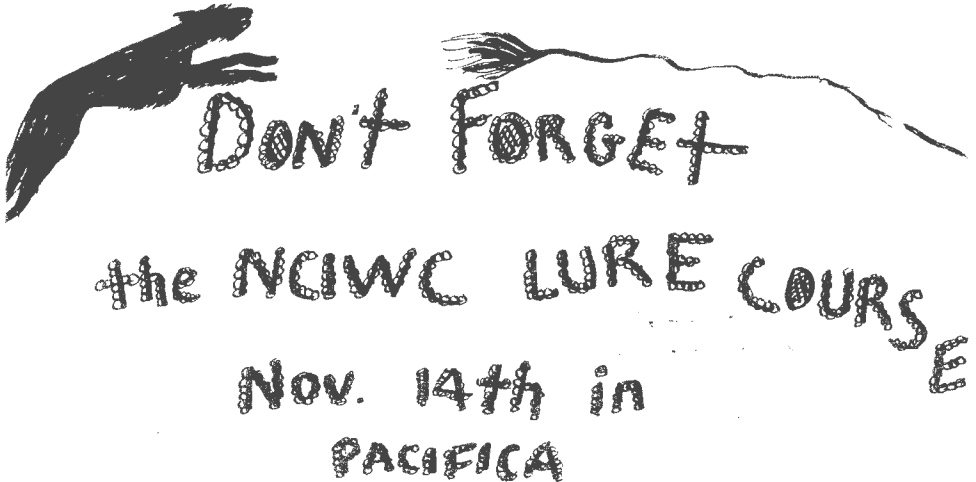 Don't Forget
the NCIWC LURE COURSE
Nov. 14th in
PACIFICA